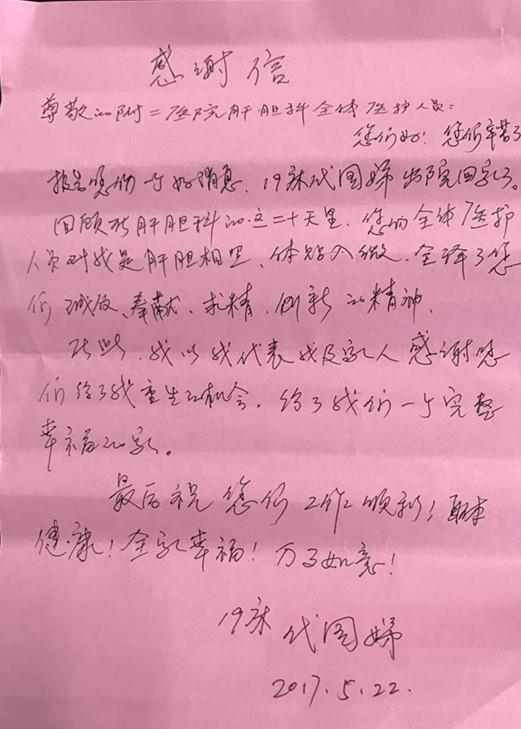 感谢信
尊敬的附二医院肝胆科全体医护人员:
您们好!您们辛苦了
报告您们一个好消息,19床代国娣出院回家了。
回顾在肝胆科的这二十天里,您的全体医护
人员对我是肝胆相照、体贴入微,全译了您
们诚信、奉献、求精、创新的精神,
在此,我以我代表我及家人感谢您
们给了我重生的机会,给了我们一个完整
幸福的家。
最后祝您们工作顺利!身体
健康!全家幸福!万事如意!
19床 代国娣
2017.5.22.